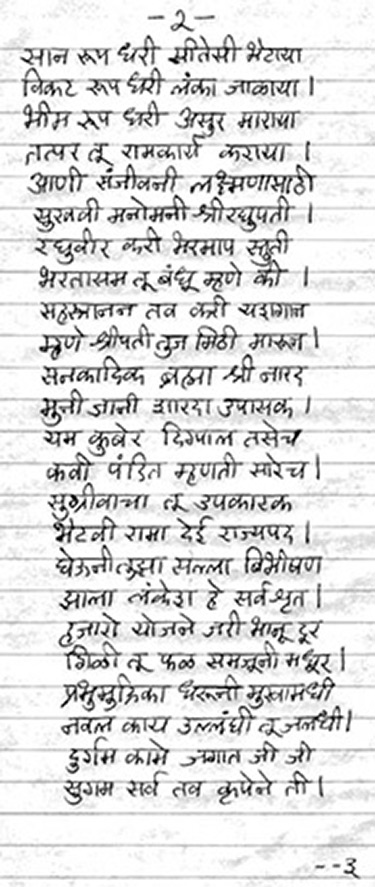 -२-
सान रूप धरी सीतेसी भेटाया
विकट रूप धरी लंका जाळाया।
भीम रूप धरी असुर माराया
तत्पर तू रामकार्य कराया।
आणी संजीवनी लक्ष्मणासाठी
सुखवी मनोमनी श्रीरघुपती।
रघुवीर करी भरमाप स्तुती
भरतासम तू बंधू म्हणे की।
सहस्त्रानन तव करी यशगान
म्हणे श्रीपती तुज मिठी मारून।
सनकादिक ब्रह्मा श्री नारद
मुनी ज्ञानी शारदा उपासक।
यम कुबेर दिग्पाल तसेच
कवी पंडित म्हणती सारेच।
सुग्रीवाचा तू उपकारक
भेटवी रामा देई राज्यपद।
घेऊनी तुझा सल्ला बिभीषण
झाला लंकेश हे सर्वश्रृत।
हजारो योजने जरी भानू दूर
गिळी तू फळ समजूनी मधूर।
प्रभुमुद्रिका धरूनी मुखामधी
नवल काय उल्लंघी तू जलधी।
दुर्गम कामे जगात जी जी
सुगम सर्व तव कृपेने ती।
--३